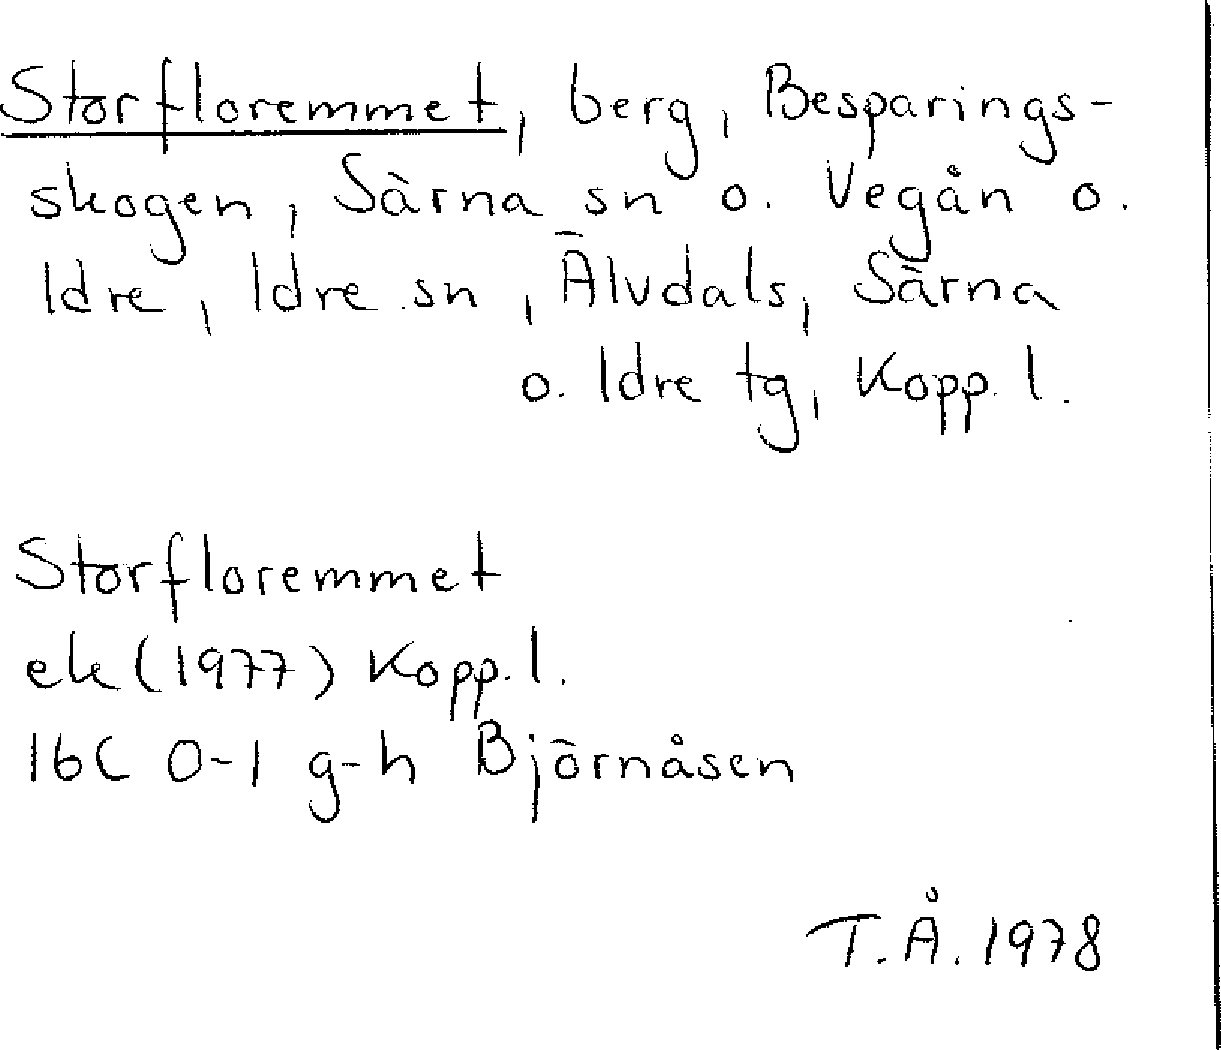 Storfloremmet, berg, Besparings-
skogen, Särna sn o. Vegån o.
Idre, Idre sn, Älvdals, Särna
o. Idre tg, Kopp. l.
Storfloremmet
ek (1977) Kopp. l.
16C 0-1 g-h Björnåsen
T.Å. 1978